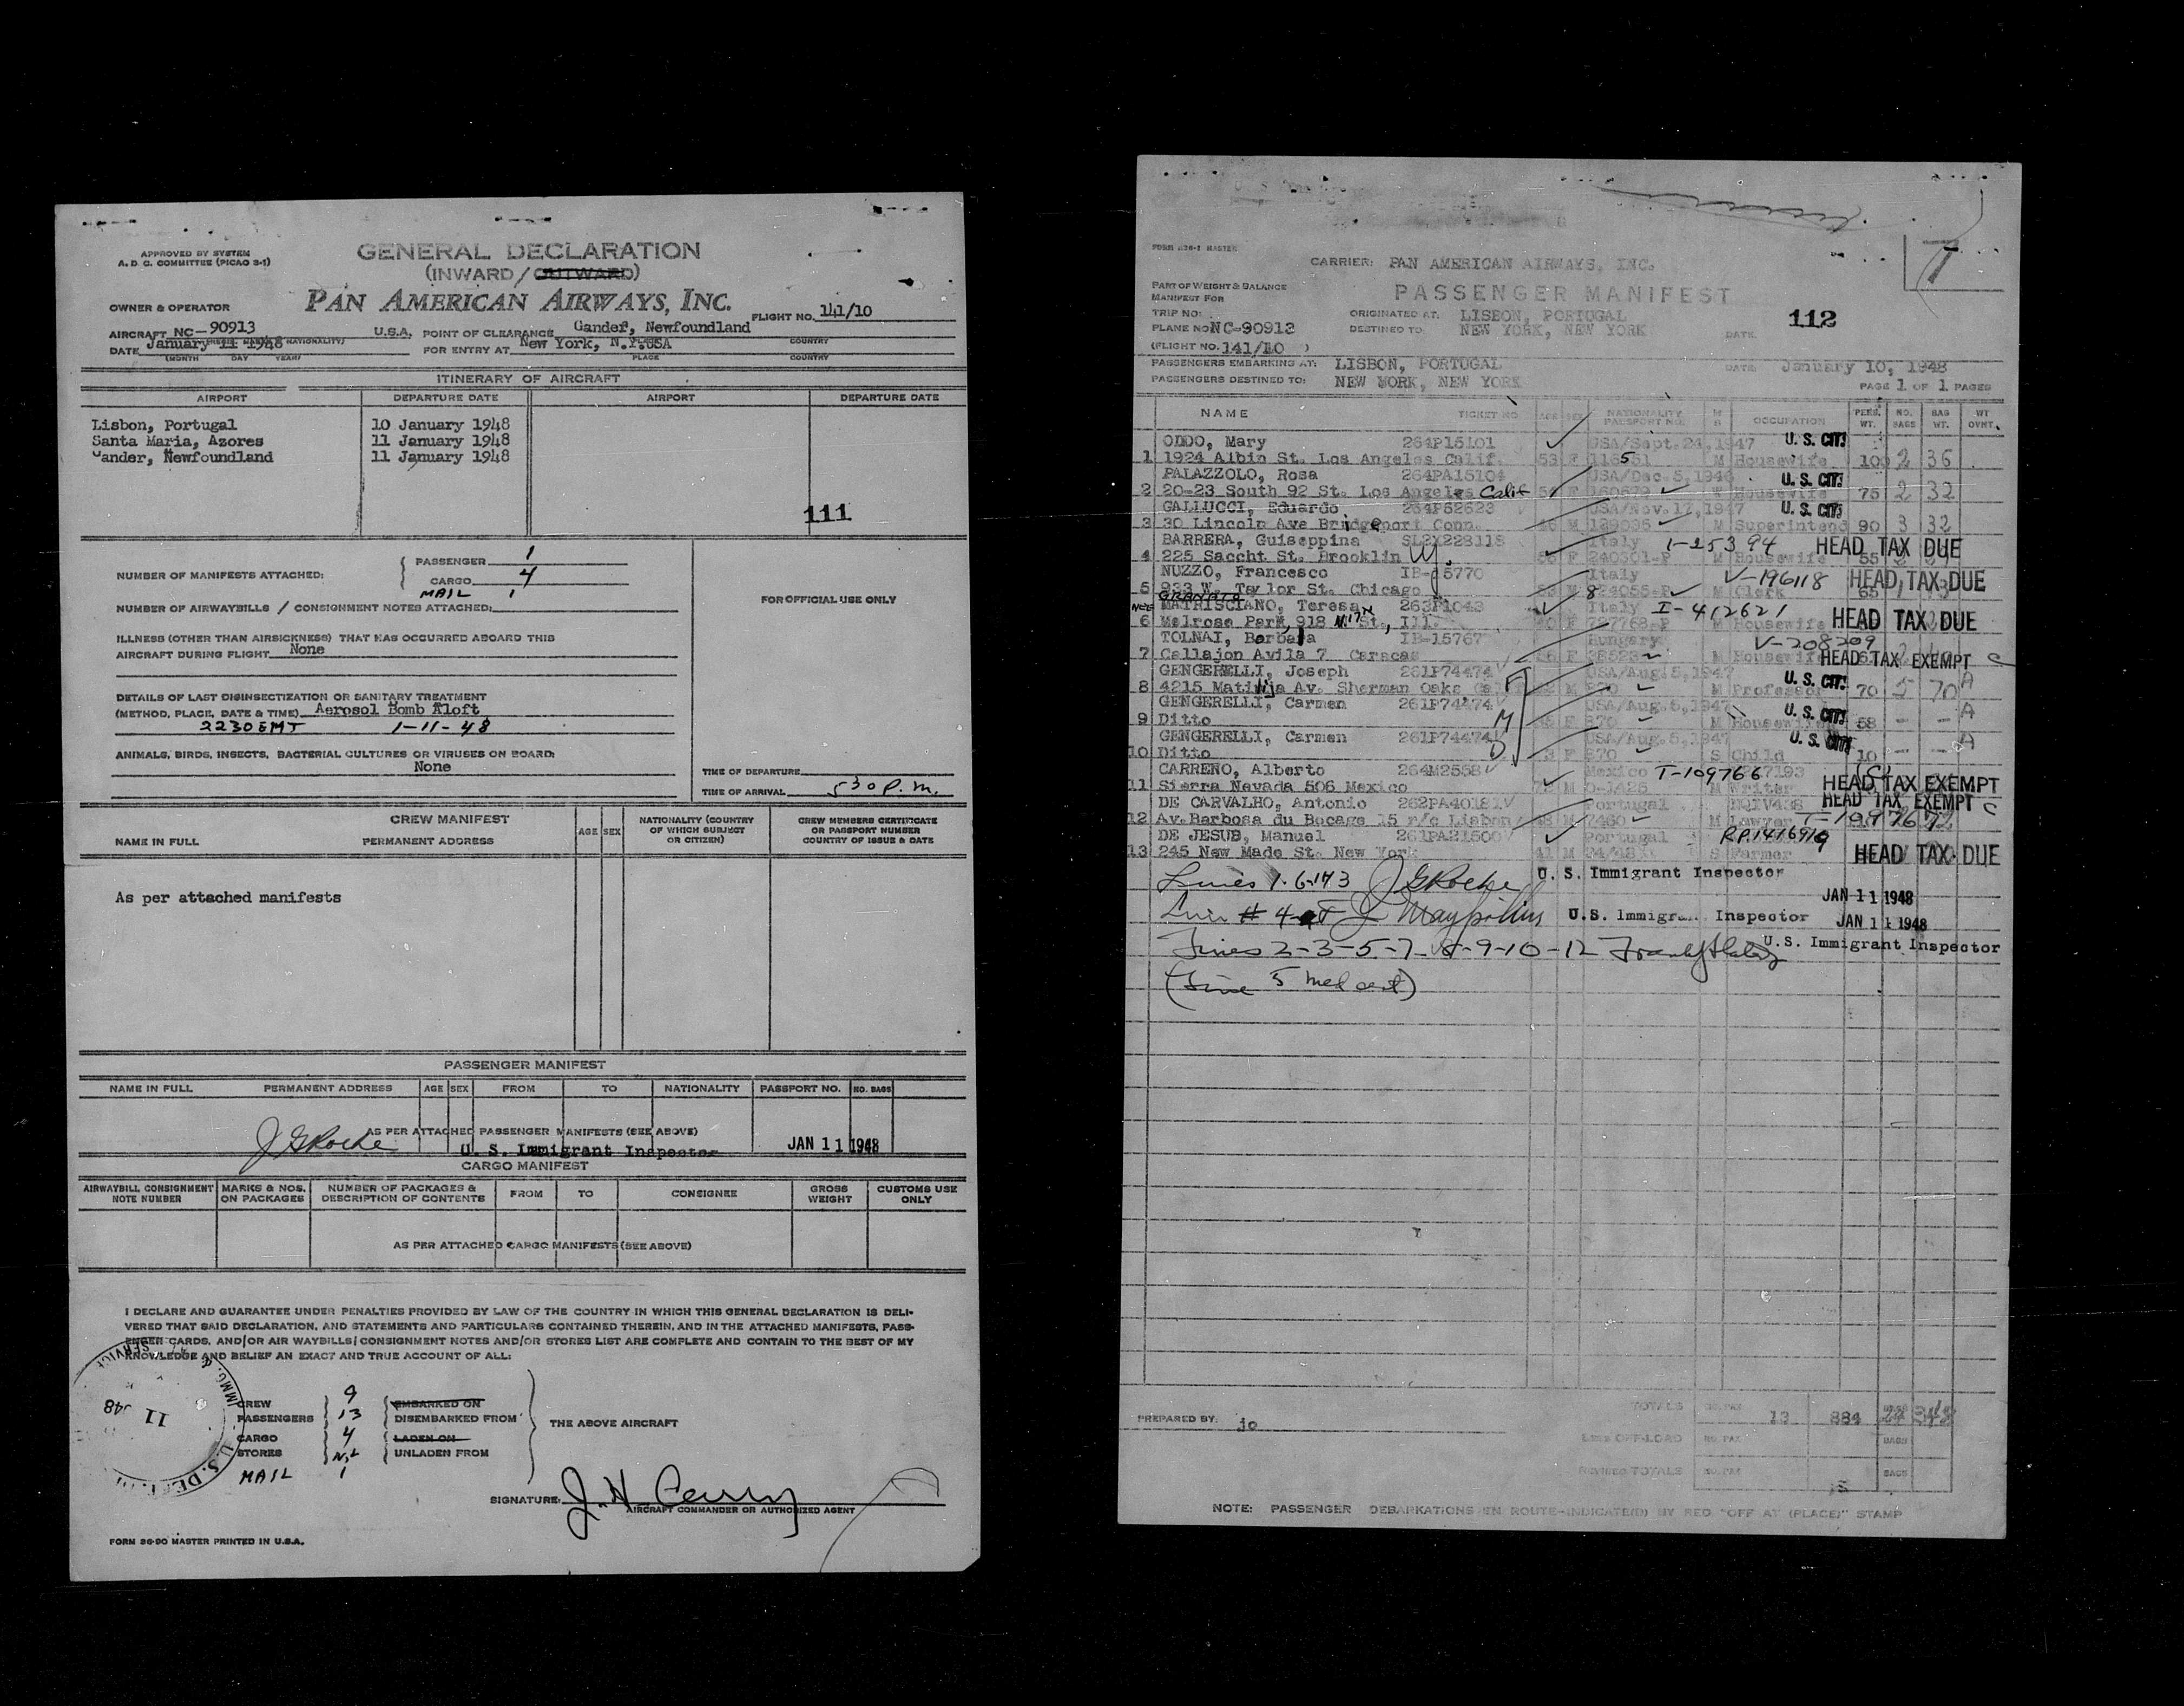 APPROVED BY SYSTEM
A. D. C. COMMITTEE (PICAO 3-1)
GENERAL DECLARATION
(INWARD/OUTWARD)
OWNER & OPERATOR
PAN AMERICAN AIRWAYS, INC.
FLIGHT NO. 141/10
AIRCRAFT NC-90913
U.S.A. POINT OF CLEARANCE Gander, Newfoundland
DATE January 11 1948
(MONTH DAY YEAR)
FOR ENTRY AT New York, N.Y. USA
PLACE COUNTRY
ITINERARY OF AIRCRAFT
AIRPORT DEPARTURE DATE AIRPORT DEPARTURE DATE
Lisbon, Portugal 10 January 1948
Santa Maria, Azores 11 January 1948
Gander, Newfoundland 11 January 1948
111
NUMBER OF MANIFESTS ATTACHED:
PASSENGER 1
CARGO 4
MAIL 1
NUMBER OF AIRWAYBILLS / CONSIGNMENT NOTES ATTACHED:
FOR OFFICIAL USE ONLY
ILLNESS (OTHER THAN AIRSICKNESS) THAT HAS OCCURRED ABOARD THIS
AIRCRAFT DURING FLIGHT None
DETAILS OF LAST DISINSECTIZATION OR SANITARY TREATMENT
(METHOD, PLACE, DATE & TIME) Aerosol Bomb Aloft
2230 GMT 1-11-48
ANIMALS, BIRDS, INSECTS, BACTERIAL CULTURES OR VIRUSES ON BOARD:
None
TIME OF DEPARTURE
TIME OF ARRIVAL 530 P.m.
CREW MANIFEST
NAME IN FULL PERMANENT ADDRESS AGE SEX
NATIONALITY (COUNTRY
OF WHICH SUBJECT
OR CITIZEN)
CREW MEMBERS CERTIFICATE
OR PASSPORT NUMBER
COUNTRY OF ISSUE & DATE
As per attached manifests
PASSENGER MANIFEST
NAME IN FULL PERMANENT ADDRESS AGE SEX FROM TO NATIONALITY PASSPORT NO. NO. BAGS
AS PER ATTACHED PASSENGER MANIFESTS (SEE ABOVE)
J G Roche U. S. Immigrant Inspector JAN 11 1948
CARGO MANIFEST
AIRWAYBILL CONSIGNMENT
NOTE NUMBER
MARKS & NOS.
ON PACKAGES
NUMBER OF PACKAGES &
DESCRIPTION OF CONTENTS
FROM TO CONSIGNEE
GROSS
WEIGHT
CUSTOMS USE
ONLY
AS PER ATTACHED CARGO MANIFESTS (SEE ABOVE)
I DECLARE AND GUARANTEE UNDER PENALTIES PROVIDED BY LAW OF THE COUNTRY IN WHICH THIS GENERAL DECLARATION IS DELI-
VERED THAT SAID DECLARATION, AND STATEMENTS AND PARTICULARS CONTAINED THEREIN, AND IN THE ATTACHED MANIFESTS, PASS-
ENGER CARDS, AND/OR AIR WAYBILLS/CONSIGNMENT NOTES AND/OR STORES LIST ARE COMPLETE AND CONTAIN TO THE BEST OF MY
KNOWLEDGE AND BELIEF AN EXACT AND TRUE ACCOUNT OF ALL:
CREW 9 EMBARKED ON
PASSENGERS 13 DISEMBARKED FROM
CARGO 4 LADEN ON
STORES NIL UNLADEN FROM
MAIL 1
THE ABOVE AIRCRAFT
SIGNATURE:
AIRCRAFT COMMANDER OR AUTHORIZED AGENT
FORM 36-90 MASTER PRINTED IN U.S.A.
CARRIER: PAN AMERICAN AIRWAYS, INC.
PASSENGER MANIFEST
PART OF WEIGHT & BALANCE
MANIFEST FOR
TRIP NO:
ORIGINATED AT: LISBON, PORTUGAL
112
PLANE NO NC-90913
DESTINED TO: NEW YORK, NEW YORK
DATE
(FLIGHT NO. 141/10 )
PASSENGERS EMBARKING AT: LISBON, PORTUGAL
DATE: January 10, 1948
PASSENGERS DESTINED TO: NEW YORK, NEW YORK
PAGE 1 OF 1 PAGES
NAME TICKET NO. AGE SEX NATIONALITY PASSPORT NO. OCCUPATION PERS. WT. NO. BAGS BAG WT. WT OVNT.
ODDO, Mary 264P15101 USA/Sept.24,1947 U. S. CIT.
1 1924 Albin St. Los Angeles Calif. 53 F M Housewife 100 2 36
PALAZZOLO, Rosa 264PA15104 USA/Dec.5,1946 U. S. CIT.
2 20-23 South 92 St. Los Angeles Calif F Housewife 75 2 32
GALLUCCI, Eduardo 264P52623 USA/Nov.17,1947 U. S. CIT.
3 30 Lincoln Ave Bridgeport Conn. M 129036 M Superintend 90 3 32
BARRERA, Guiseppina Italy I-25394 HEAD TAX DUE
4 225 Saccht St. Brooklin F 240301-P M Housewife 55
NUZZO, Francesco Italy V-196118 HEAD TAX DUE
5 933 W. Taylor St. Chicago M M Clerk 65
GRANATO
NEE MATRISCIANO, Teresa 263P1043 Italy I-412621 HEAD TAX DUE
6 Melrose Park, 918 N. 17th St., Ill. F M Housewife
TOLNAI, Barbara IB-15767 Hungary V-208209
7 Callajon Avila 7 Caracas F M Housewife HEAD TAX EXEMPT C
GENGERELLI, Joseph 261P74474 USA/Aug.5,1947 U. S. CIT. A
8 4215 Matilija Av. Sherman Oaks M M Professor 70 5 70
GENGERELLI, Carmen 261P74474 USA/Aug.5,1947 U. S. CIT. A
9 Ditto M F 870 M Housewife 58 - -
GENGERELLI, Carmen 261P74474 USA/Aug.5,1947 U. S. CIT. A
10 Ditto D 3 F 870 S Child 10 - -
CARRENO, Alberto 264M2558 Mexico T-109766 HEAD TAX EXEMPT
11 Sierra Nevada 506 Mexico M M Writer
DE CARVALHO, Antonio 262PA40181 Portugal HEAD TAX EXEMPT C
12 Av. Barbosa du Bocage 15 r/c Lisbon M 7460 M Lawyer T-109767
DE JESUS, Manuel 261PA21500 Portugal RP.1416919
13 245 New Made St. New York 41 M S Farmer HEAD TAX DUE
Lines 1-6-11-13 J G Roche U. S. Immigrant Inspector
JAN 11 1948
Line # 4 U.S. Immigrant Inspector JAN 11 1948
Lines 2-3-5-7-8-9-10-12 U. S. Immigrant Inspector
(Line 5 med cert)
PREPARED BY: jo
TOTALS NO. PAX 13 884
LESS OFF-LOAD NO. PAX BAGS
REVISED TOTALS NO. PAX BAGS
NOTE: PASSENGER DEBARKATIONS EN ROUTE-INDICATE(D) BY RED "OFF AT (PLACE)" STAMP